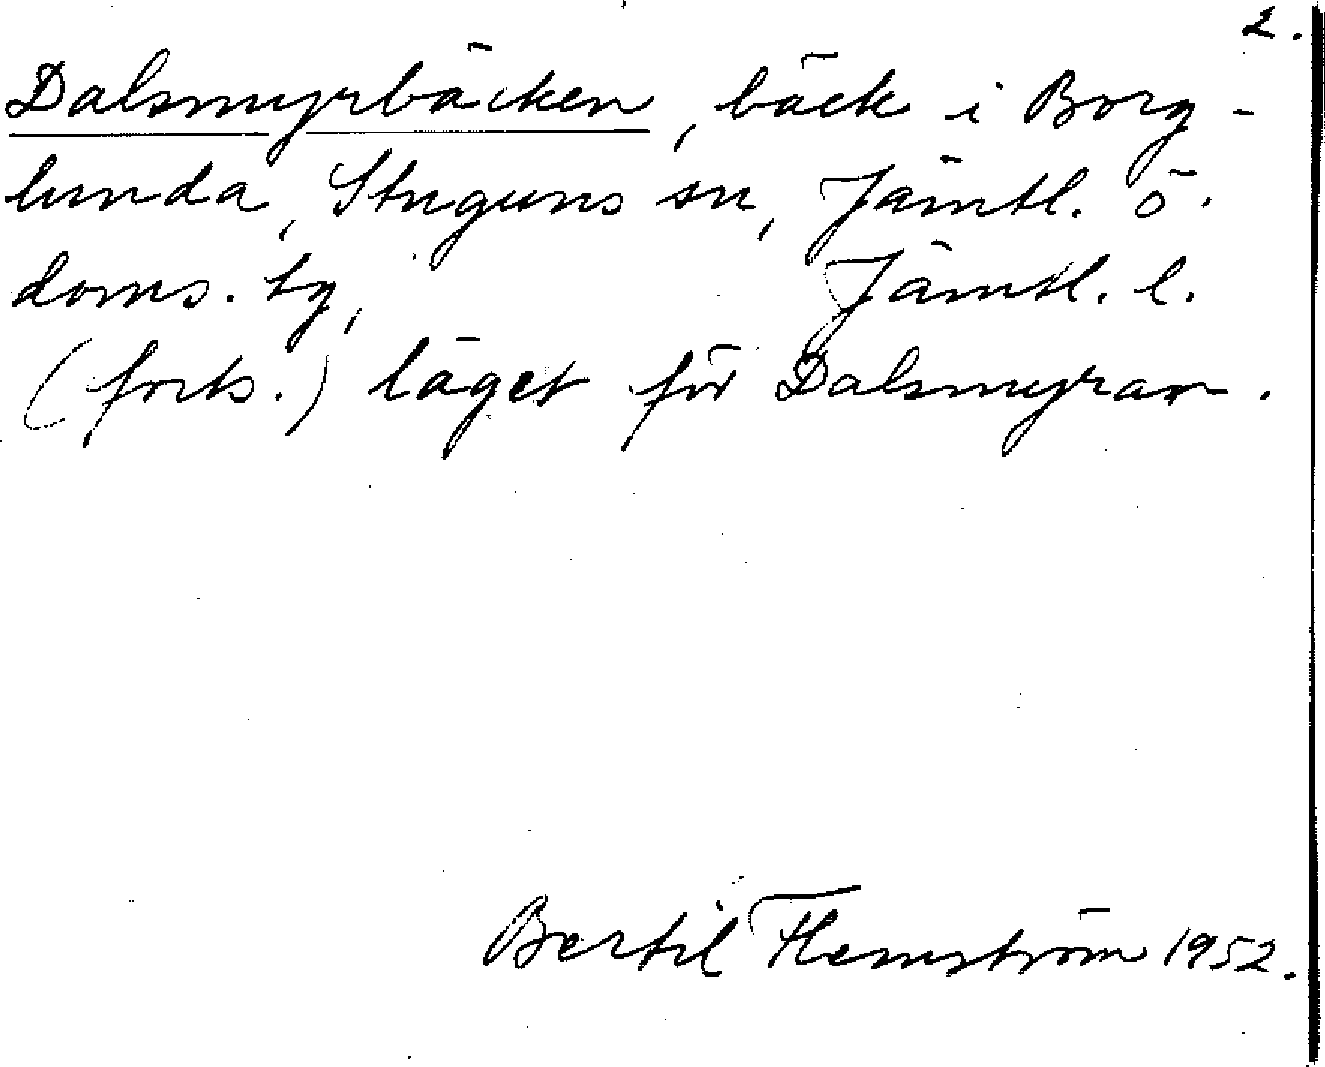 2.
Dalsmyrbäcken, bäck i Borg-
lunda, Stuguns sn, Jämtl. ö.
doms. tg, Jämtl. l.
(forts.) läget för Dalsmyran.
Bertil Flemström 1952.